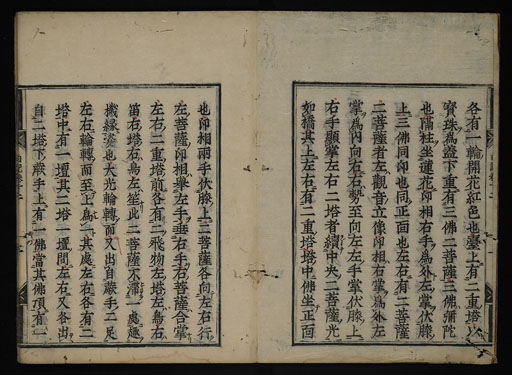 各有一輪開花紅色也臺上有二重塔以
寳珠為盖下重有三佛二菩薩三佛彌陀
也隔柱坐蓮花印相右手為外左掌伏膝
上三佛同印也同正面也左右有二菩薩
二菩薩者左觀音立像印相右掌為外左
掌為内向右右勢至向左左手掌伏膝上
右手顯掌左右二塔者續中央二菩薩光
如橋其上左右有二重塔塔中佛坐正面
也印相兩手伏膝上二菩薩各向左右行
左菩薩印相舉左手垂右手右菩薩合掌
左右二重塔前各有二飛物左塔左鳥右
笛右塔右鳥左笙此二菩薩不滯一處趣
機緣姿也大光輪轉而又出自蕨手二足
左右輪轉而至上為一其處左右各有二
塔中有一壇其二塔一壇間左右又各出
自二塔下蕨手上有一佛當其佛頂有一